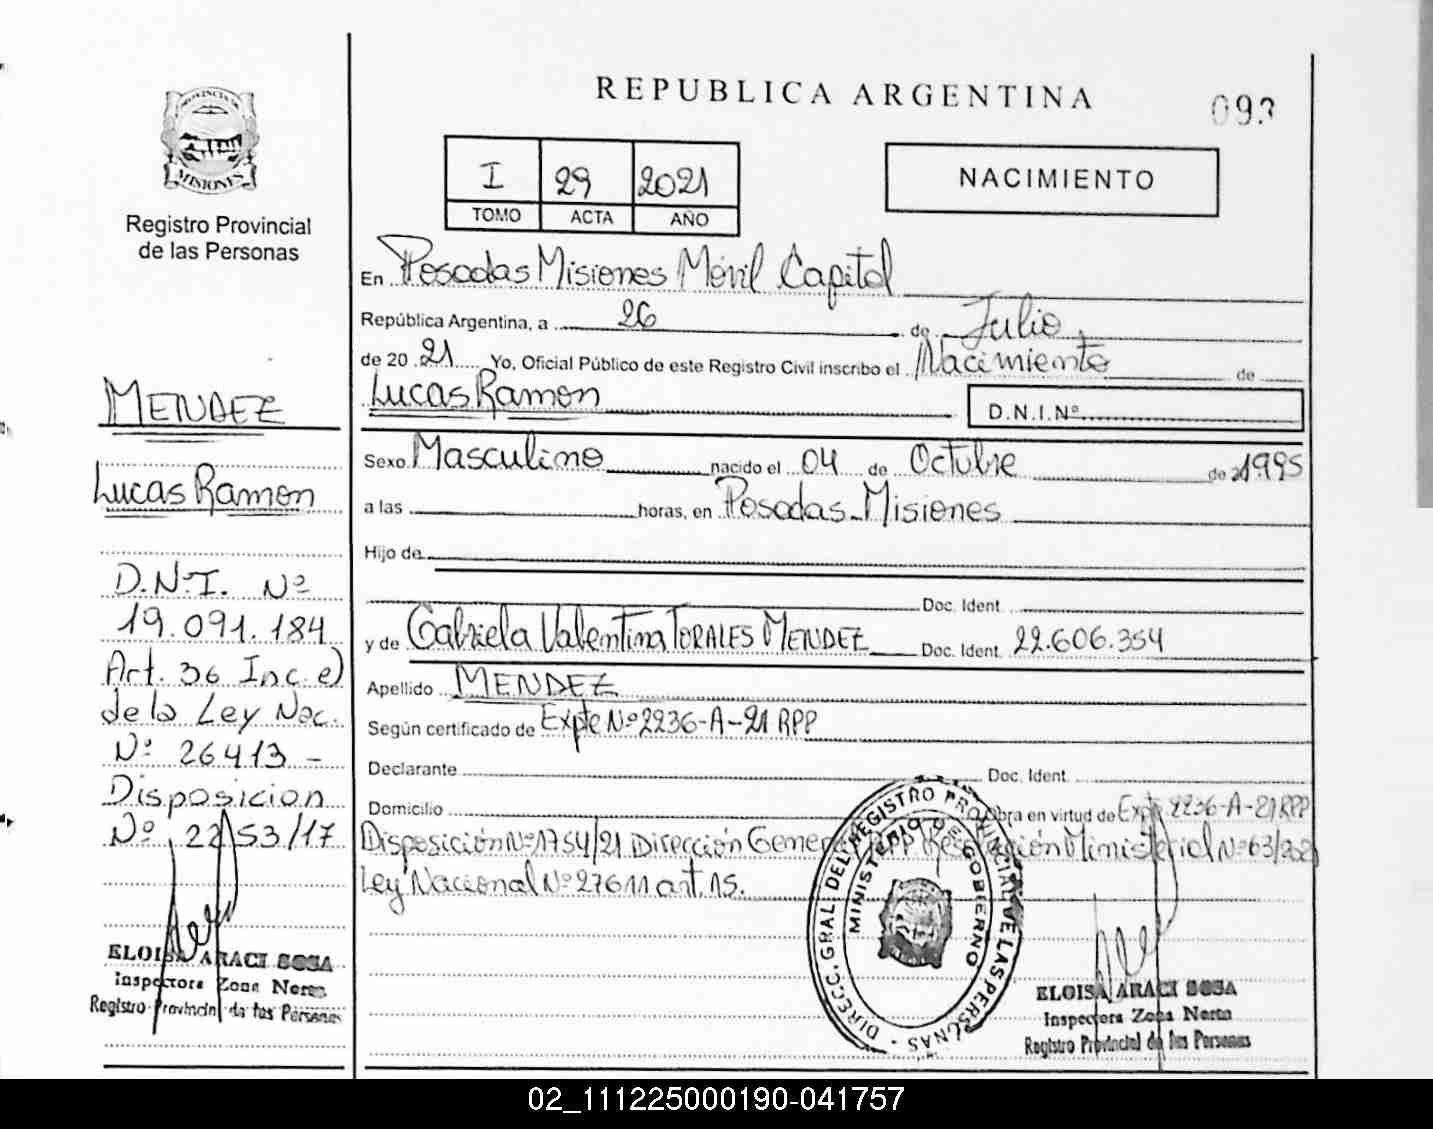 REPUBLICA ARGENTINA
093
PROVINCIA DE
MISIONES
Registro Provincial
de las Personas
I 29 2021
TOMO ACTA AÑO
NACIMIENTO
En Posadas Misiones Móvil Capital
República Argentina, a 26 de Julio
de 2021 Yo, Oficial Público de este Registro Civil inscribo el Nacimiento de
Lucas Ramon D.N.I.Nº
Sexo Masculino nacido el 04 de Octubre de 1995
a las horas, en Posadas Misiones
Hijo de
Doc. Ident.
y de Gabriela Valentina TORALES MENDEZ Doc. Ident. 22.606.354
Apellido MENDEZ
Según certificado de Expte Nº 2236-A-21 RPP
Declarante Doc. Ident.
Domicilio Obra en virtud de Expte 2236-A-21 RPP
Disposición Nº 1754/21 Dirección General RPP Resolución Ministerial Nº 63/
Ley Nacional Nº 27611 art. 15.
MENDEZ
Lucas Ramon
D.N.I. Nº
19.091.184
Art. 36 Inc. e)
de la Ley Nac.
Nº 26413 -
Disposicion
Nº 2253/17
ELOISA ARACI SOSA
Inspectora Zona Norte
Registro Provincial de las Personas
DIRECC. GRAL. DEL REGISTRO PROVINCIAL DE LAS PERSONAS -
MINISTERIO DE GOBIERNO
ELOISA ARACI SOSA
Inspectora Zona Norte
Registro Provincial de las Personas
02_111225000190-041757